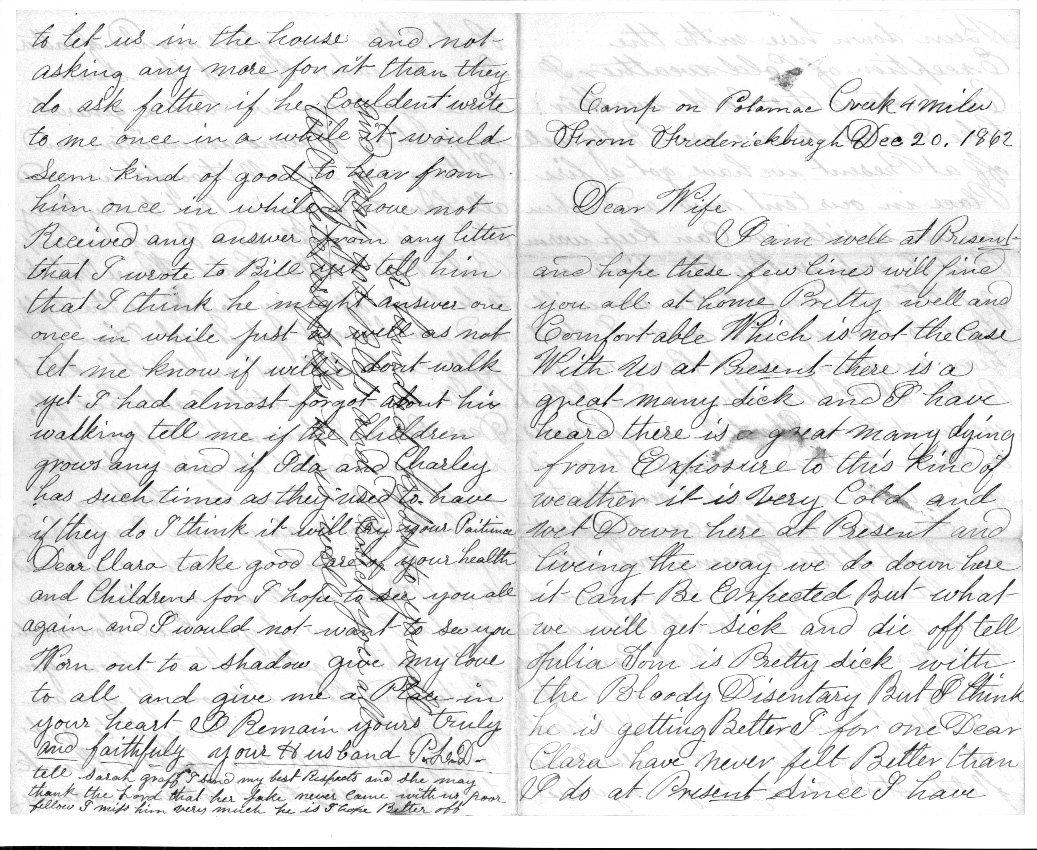 Camp on Potamac Creek 4 miles
From Frederickburgh Dec 20. 1862
Dear Wife
I am well at Present
and hope these few lines will find
you all at home Pretty well and
Comfortable Which is not the Case
With us at Present there is a
great many sick and I have
heard there is a great many dying
from Exposure to this kind of
weather it is very Cold and
wet Down here at Present and
liveing the way we do down here
it Cant Be Expected But what
we will get sick and die off tell
Julia Tom is Pretty sick with
the Bloody Disentary But I think
he is getting Better I for one Dear
Clara have never felt Better than
I do at Present Since I have
to let us in the house and not
asking any more for it than they
do ask father if he Couldent write
to me once in a while it would
Seem kind of good to hear from
him once in while I have not
Received any answer from any litter
that I wrote to Bill just tell him
that I think he might answer one
once in while just as well as not
let me know if willie dont walk
yet I had almost forgot about his
walking tell me if the Children
grows any and if Ida and Charley
has such times as they used to have
if they do I think it will try your Paitince
Dear Clara take good care of your health
and Childrens for I hope to see you all
again and I would not want to see you
Worn out to a shadow give my love
to all and give me a Place in
your heart I Remain yours truly
and faithfuly your Husband P.L.D-
tell sarah graff I send my best Respects and she may
thank the Lord that her Jake never came with us Poor
fellow I miss him very much he is I hope Better off